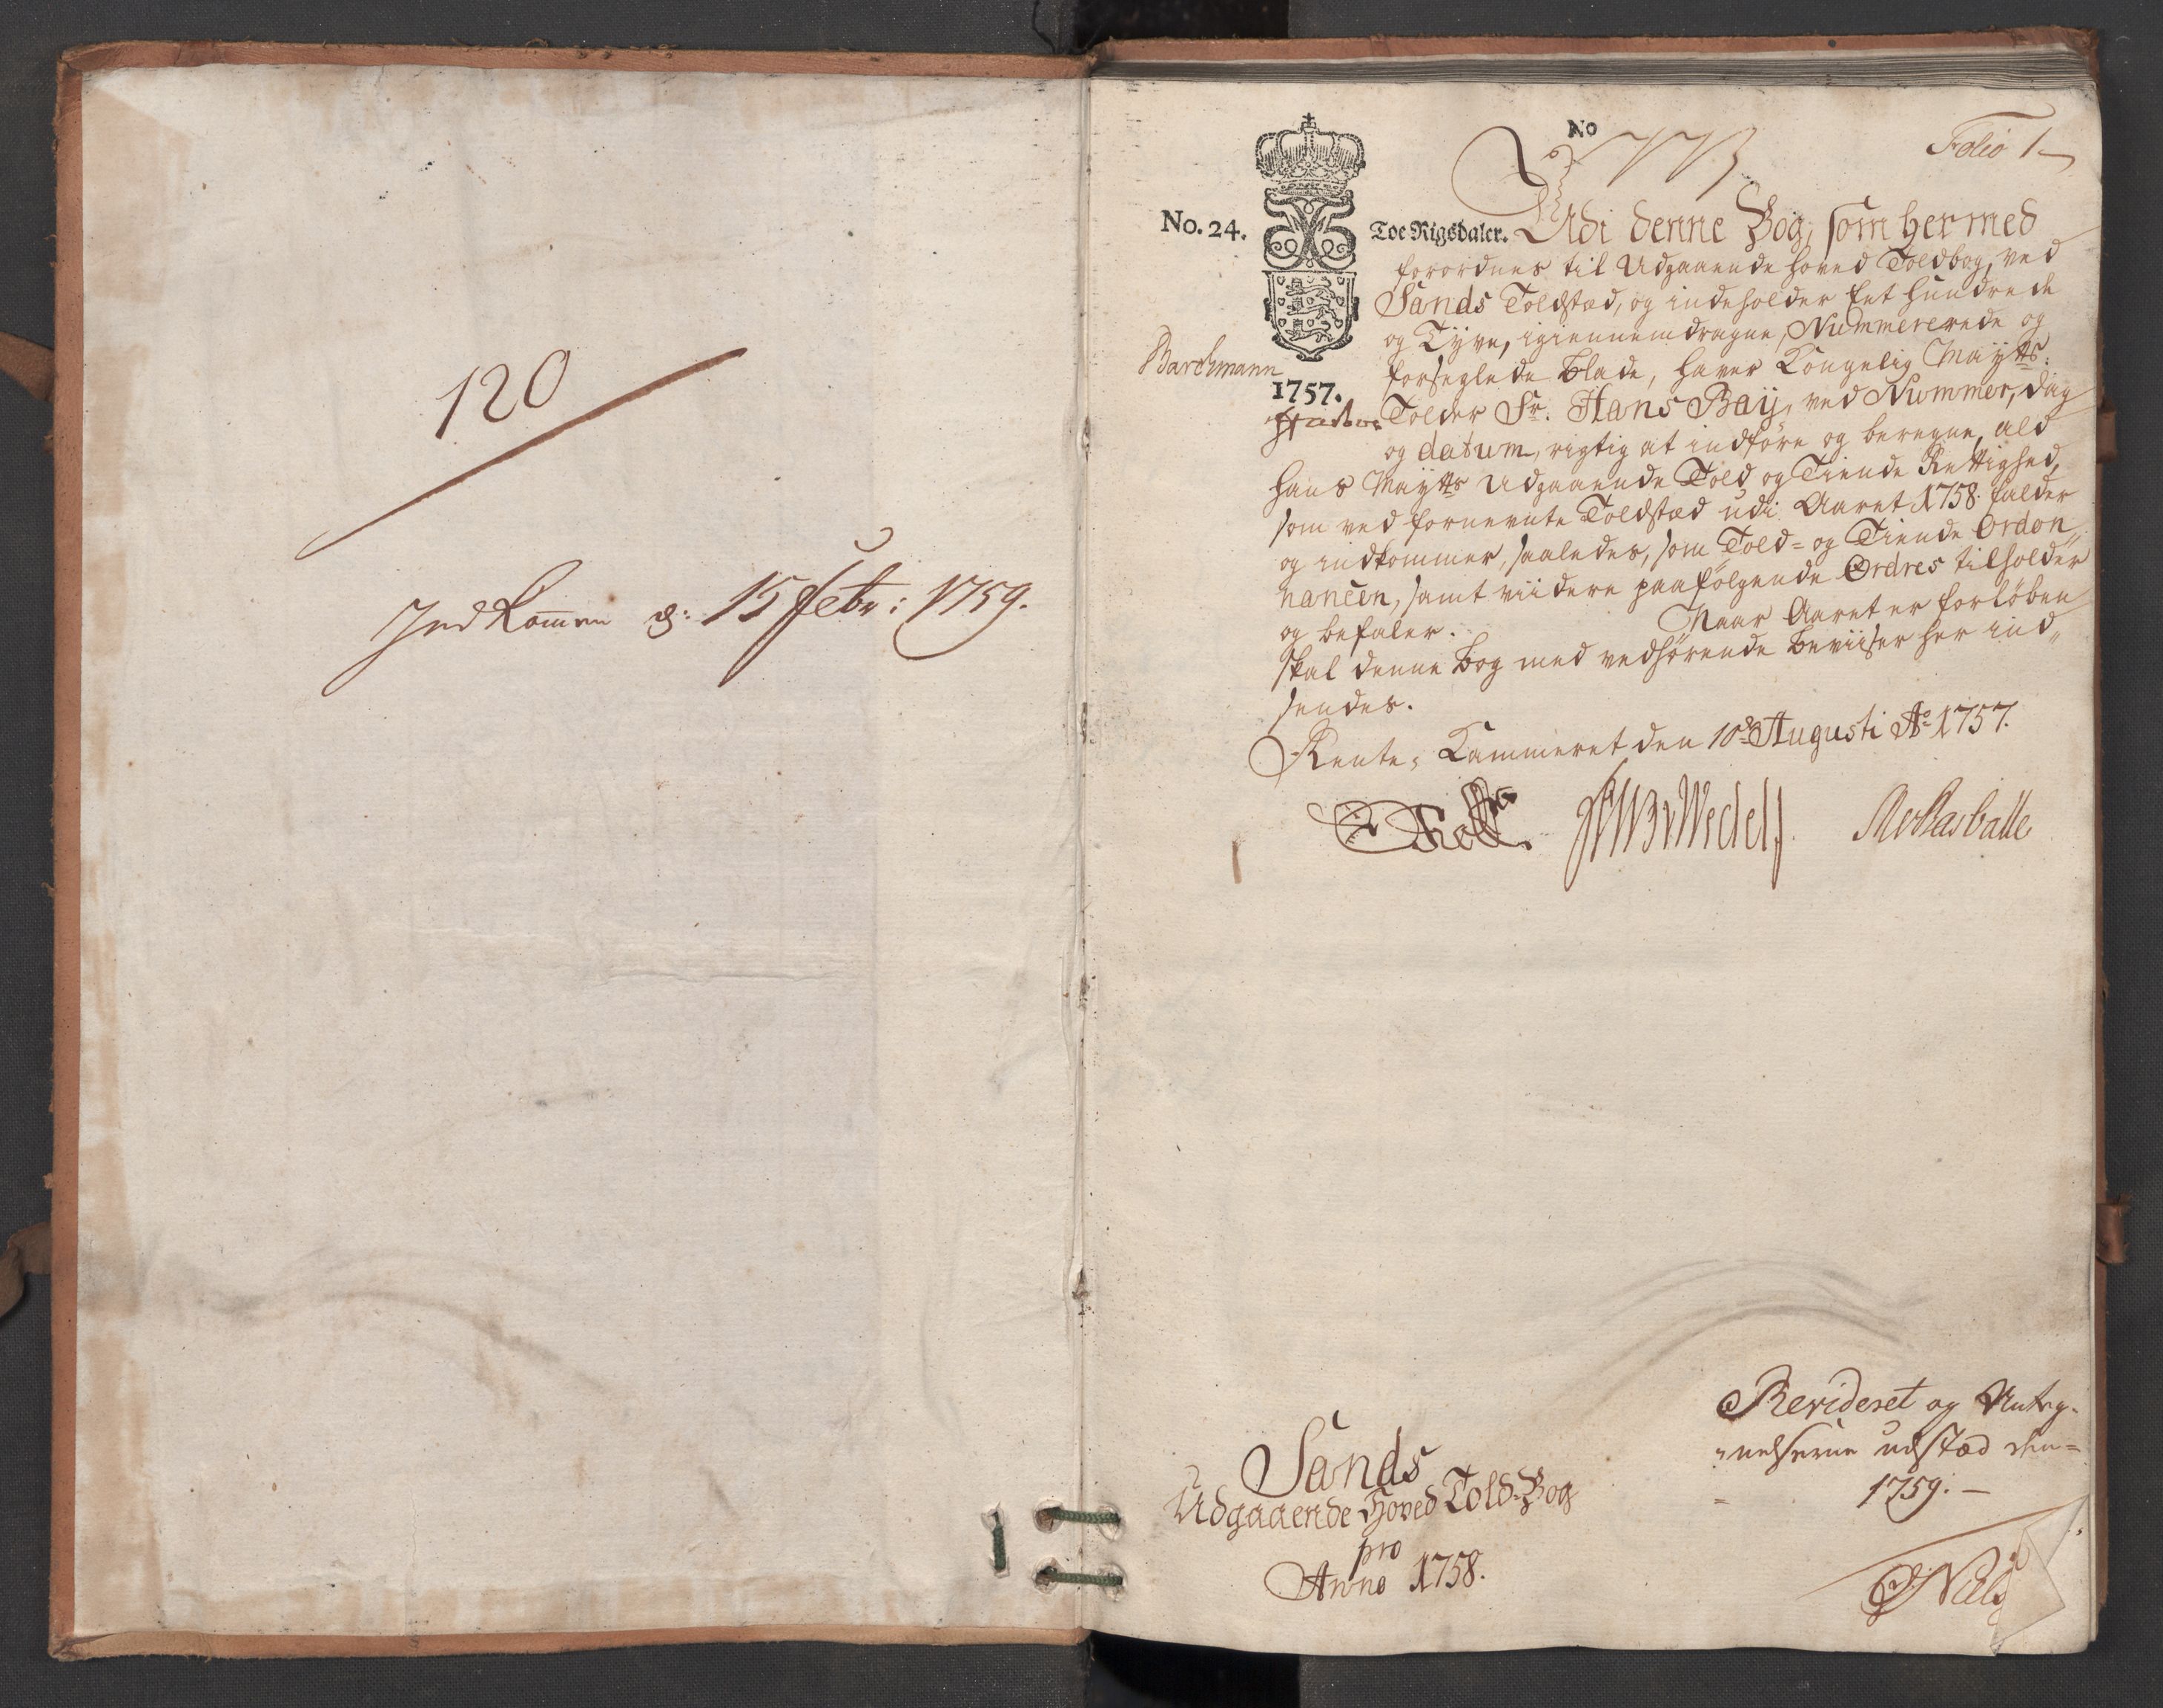 120
Indkommen d: 15 Febr: 1759.
No
Folio 1
No. 24.
Toe Rigsdaler.
Udi denne Bog, som hermed
forordnes til Udgaaende Hoved Toldbog, ved
Sands Toldstæd, og indeholder Eet Hundrede
og Tÿve, igiennemdragne, Nummererede og
forseglede Blade, haver Kongelig Maÿtts:
Barchmann
1757.
Tolder Sr. Hans Baÿ, ved Nummer, dag
og datum, rigtig at indføre og beregne, ald
Hans Maÿtts Udgaaende Told og Tiende Rettighed,
som ved fornevnte Toldstæd udi Aaret 1758. falder
og indkommer, saaledes, som Told- og Tiende Ordon„
nancen, samt viidere paafølgende Ordres tilholder
og befaler.
Naar Aaret er forløben
skal denne Bog med vedhørende Beviiser her ind„
sendes.
Rente-Cammeret den 10de Augusti Ao 1757.
Wedel
Sands
Udgaaende Hoved Told-Bog
pro
Anno 1758.
Revideret og Anteg-
nelserne udstæd den
1759.